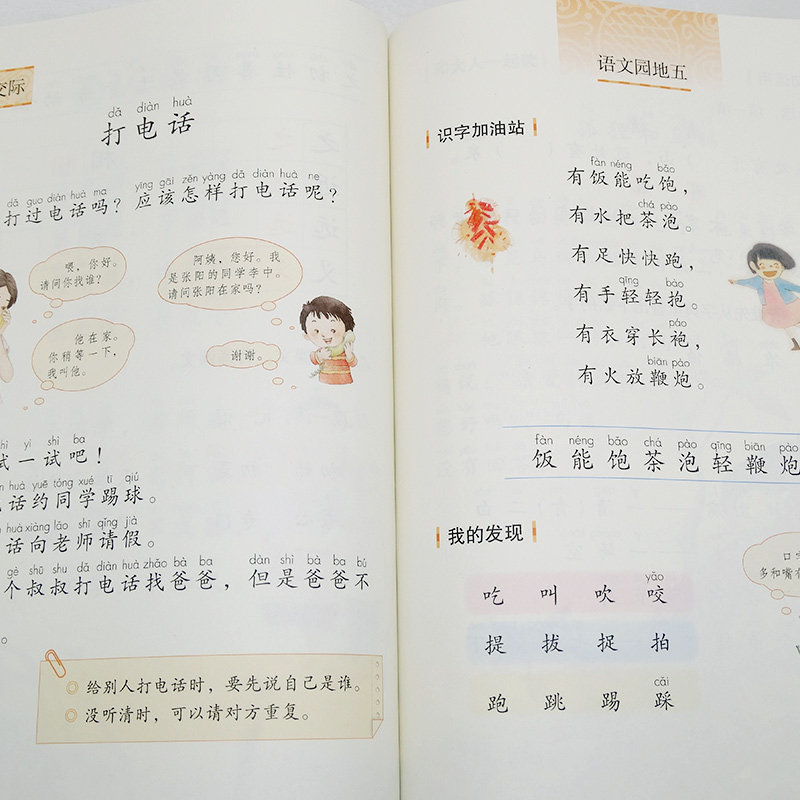 交际
dǎ diàn huà
打电话
dǎ guo diàn huà ma yīng gāi zěn yàng dǎ diàn huà ne
打过电话吗？应该怎样打电话呢？
喂，你好。
请问你找谁？
阿姨，您好。我
是张阳的同学李中。
请问张阳在家吗？
他在家。
你稍等一下，
我叫他。
谢谢。
shì yi shì ba
试一试吧！
huà yuē tóng xué tī qiú
话约同学踢球。
huà xiàng lǎo shī qǐng jià
话向老师请假。
gè shū shu dǎ diàn huà zhǎo bà ba dàn shì bà ba bú
个叔叔打电话找爸爸，但是爸爸不
。
给别人打电话时，要先说自己是谁。
没听清时，可以请对方重复。
语文园地五
识字加油站
fàn néng bǎo
有饭能吃饱，
chá pào
有水把茶泡。
有足快快跑，
qīng bào
有手轻轻抱。
páo
有衣穿长袍，
biān pào
有火放鞭炮。
fàn néng bǎo chá pào qīng biān pào
饭能饱茶泡轻鞭炮
我的发现
yǎo
吃 叫 吹 咬
提 拔 捉 拍
cǎi
跑 跳 踢 踩
口字
多和嘴有